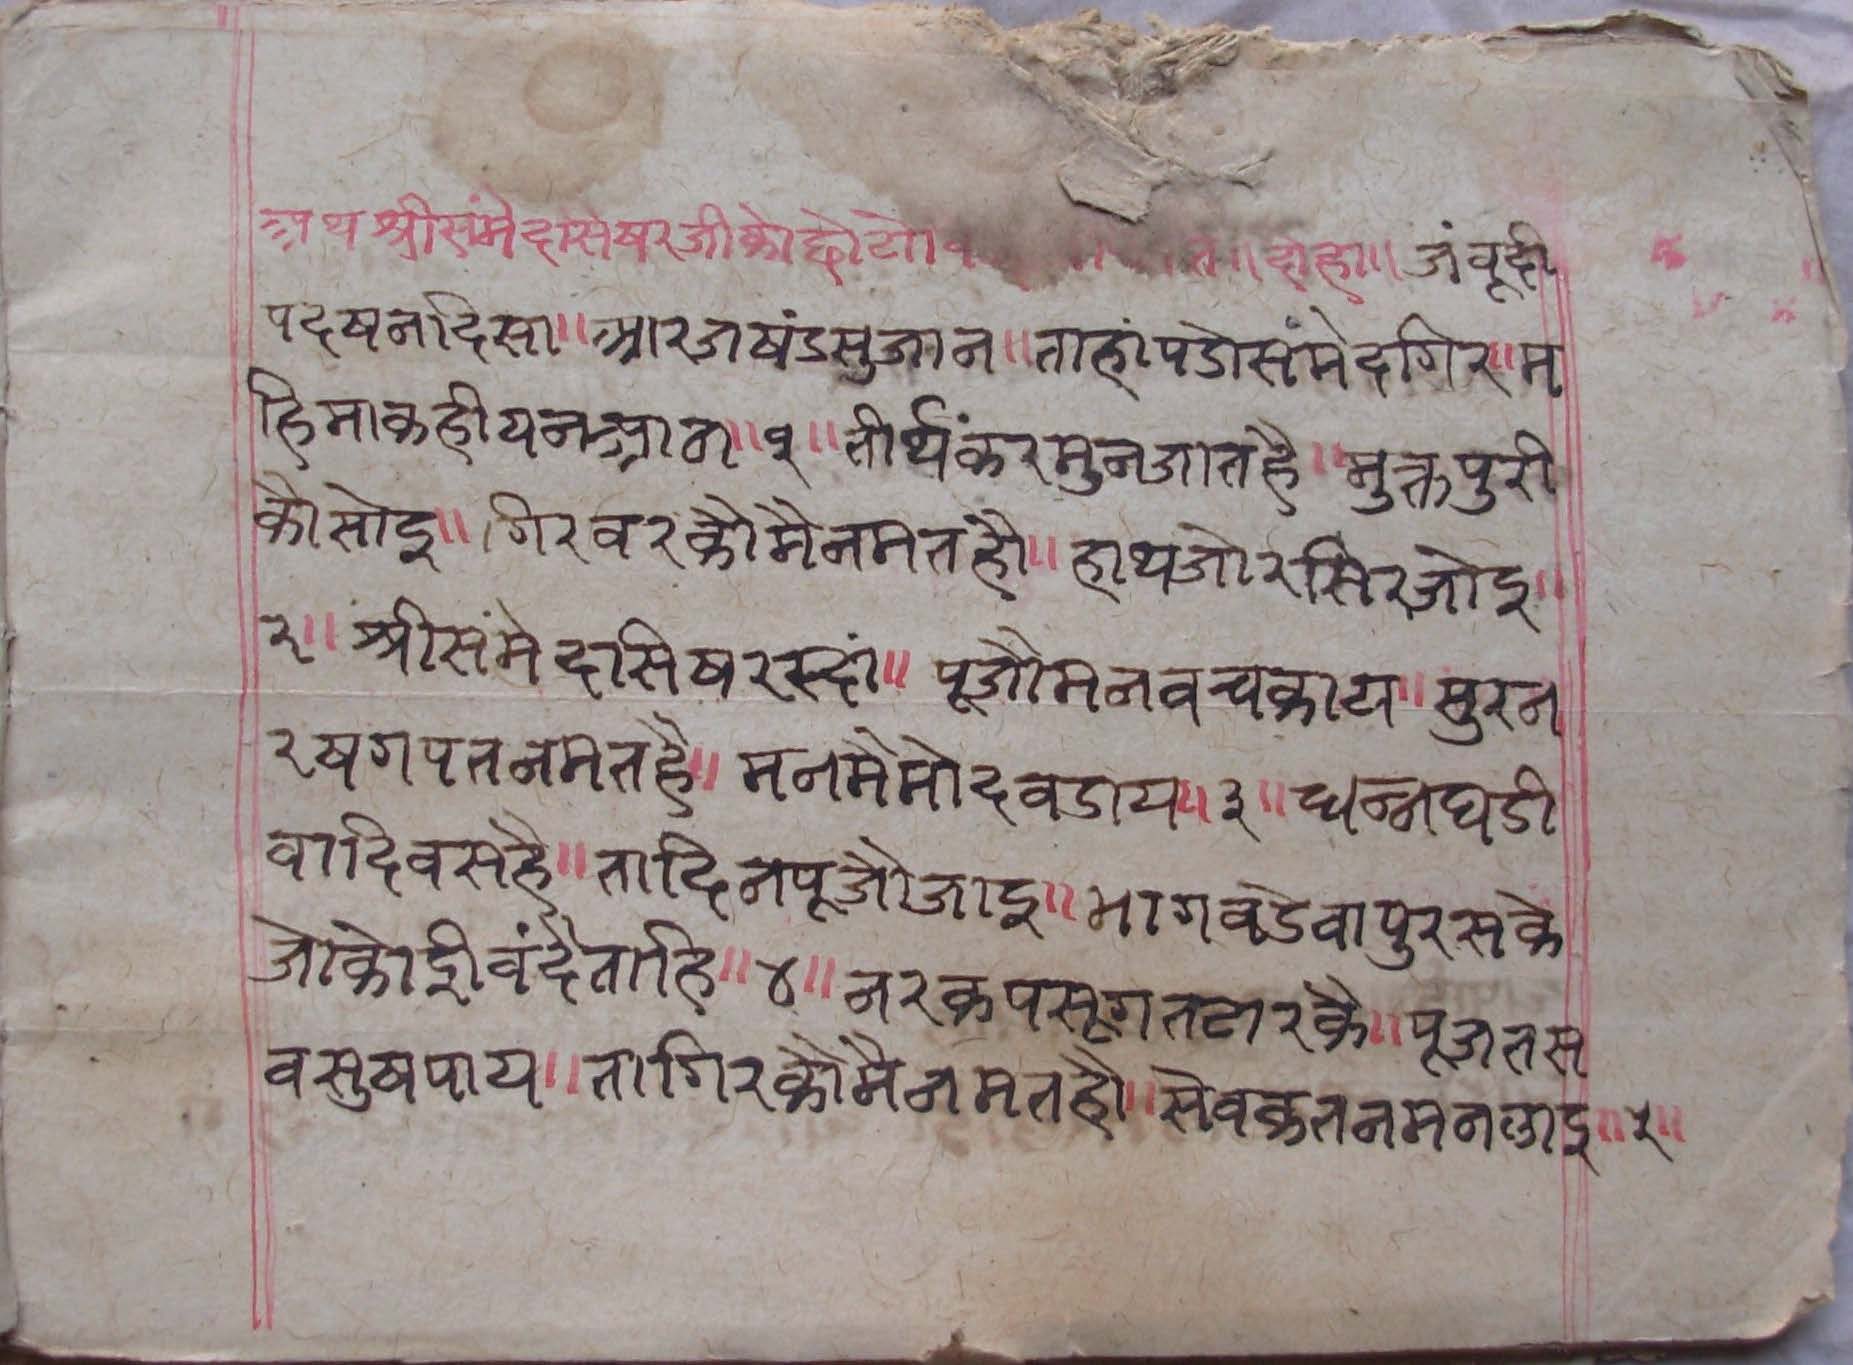 अथ श्रीसंमेदासेषरजीकोछोटो ॥दोहा॥ जंवूदी
पदषनदिसा॥आरजषंडसुजान॥ताहांपडोसंमेदगिर॥म
हिमाकहीयनआन॥१॥तीर्थंकरमुनजातहै॥मुक्तपुरी
कौसोइ॥गिरवरकौमैनमतहौ॥हाथजोरसिरजोइ॥
२॥श्रीसंमेदासिषरस्दां॥पूजौमनवचकाय॥सुरन
रषगपतनमतहै॥मनमैमोदवडाय॥३॥धन्नघडी
वादिवसहै॥तादिनपूजौजाइ॥भागवडेवापुरसके
जोकोईवंदैताहि॥४॥नरकपसूगतटारकै॥पूजतस
वसुषपाय॥तागिरकौमैनमतहौ॥सेवकतनमनलाइ॥५॥